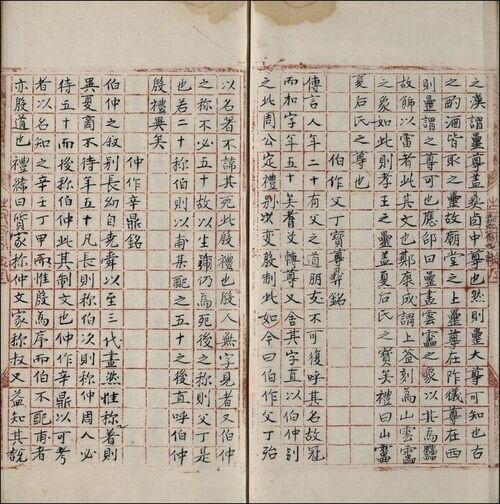 之漢謂之尊蓋彝卣中尊也然則罍大尊可知也古
之酌酒皆取之罍故廟堂之上罍尊在阼犧尊在西
則罍謂之尊可也應邵曰罍畫雲靁之象以其為靁
故飾以雷者此其文也鄭康成謂上蓋刻為山雲靁
之象如此則孝王之罍蓋夏后氏之寶矣禮曰山罍
夏后氏之尊也
伯作父丁寶尊彝銘
傳言人年二十有父之道朋友不可復呼其名故冠
而加字年五十矣耆艾轉尊又舍其字直以伯仲別
之此周公定禮別以變殷制此如今曰伯作父丁殆
以名者不諦其死此殷禮也殷人無字見者又伯仲
之称不必五十故以生號仍為死後之称則父丁是
也若二十称伯則以甫某配之五十之後直呼伯仲
殷禮異矣
仲作辛鼎銘
伯仲之叙別長幼自堯舜以至三代盡然惟称者則
異夏商不待年五十凡長則称伯次則称仲周人必
待五十而後称伯仲此其制文也仲作辛鼎以可考
者以名知之辛壬丁甲而惟殷為序而伯不配甫者
亦殷道也禮緯曰質家称仲文家称叔又益知其說